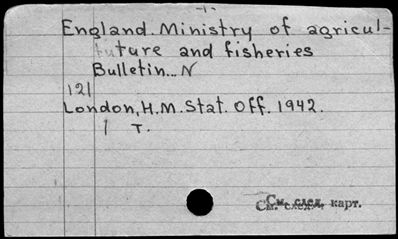 -1-
England. Ministry of agricul-
ture and fisheries
Bulletin... N
121
London, H.M. Stat. Off. 1942.
1 т.
См. след. карт.